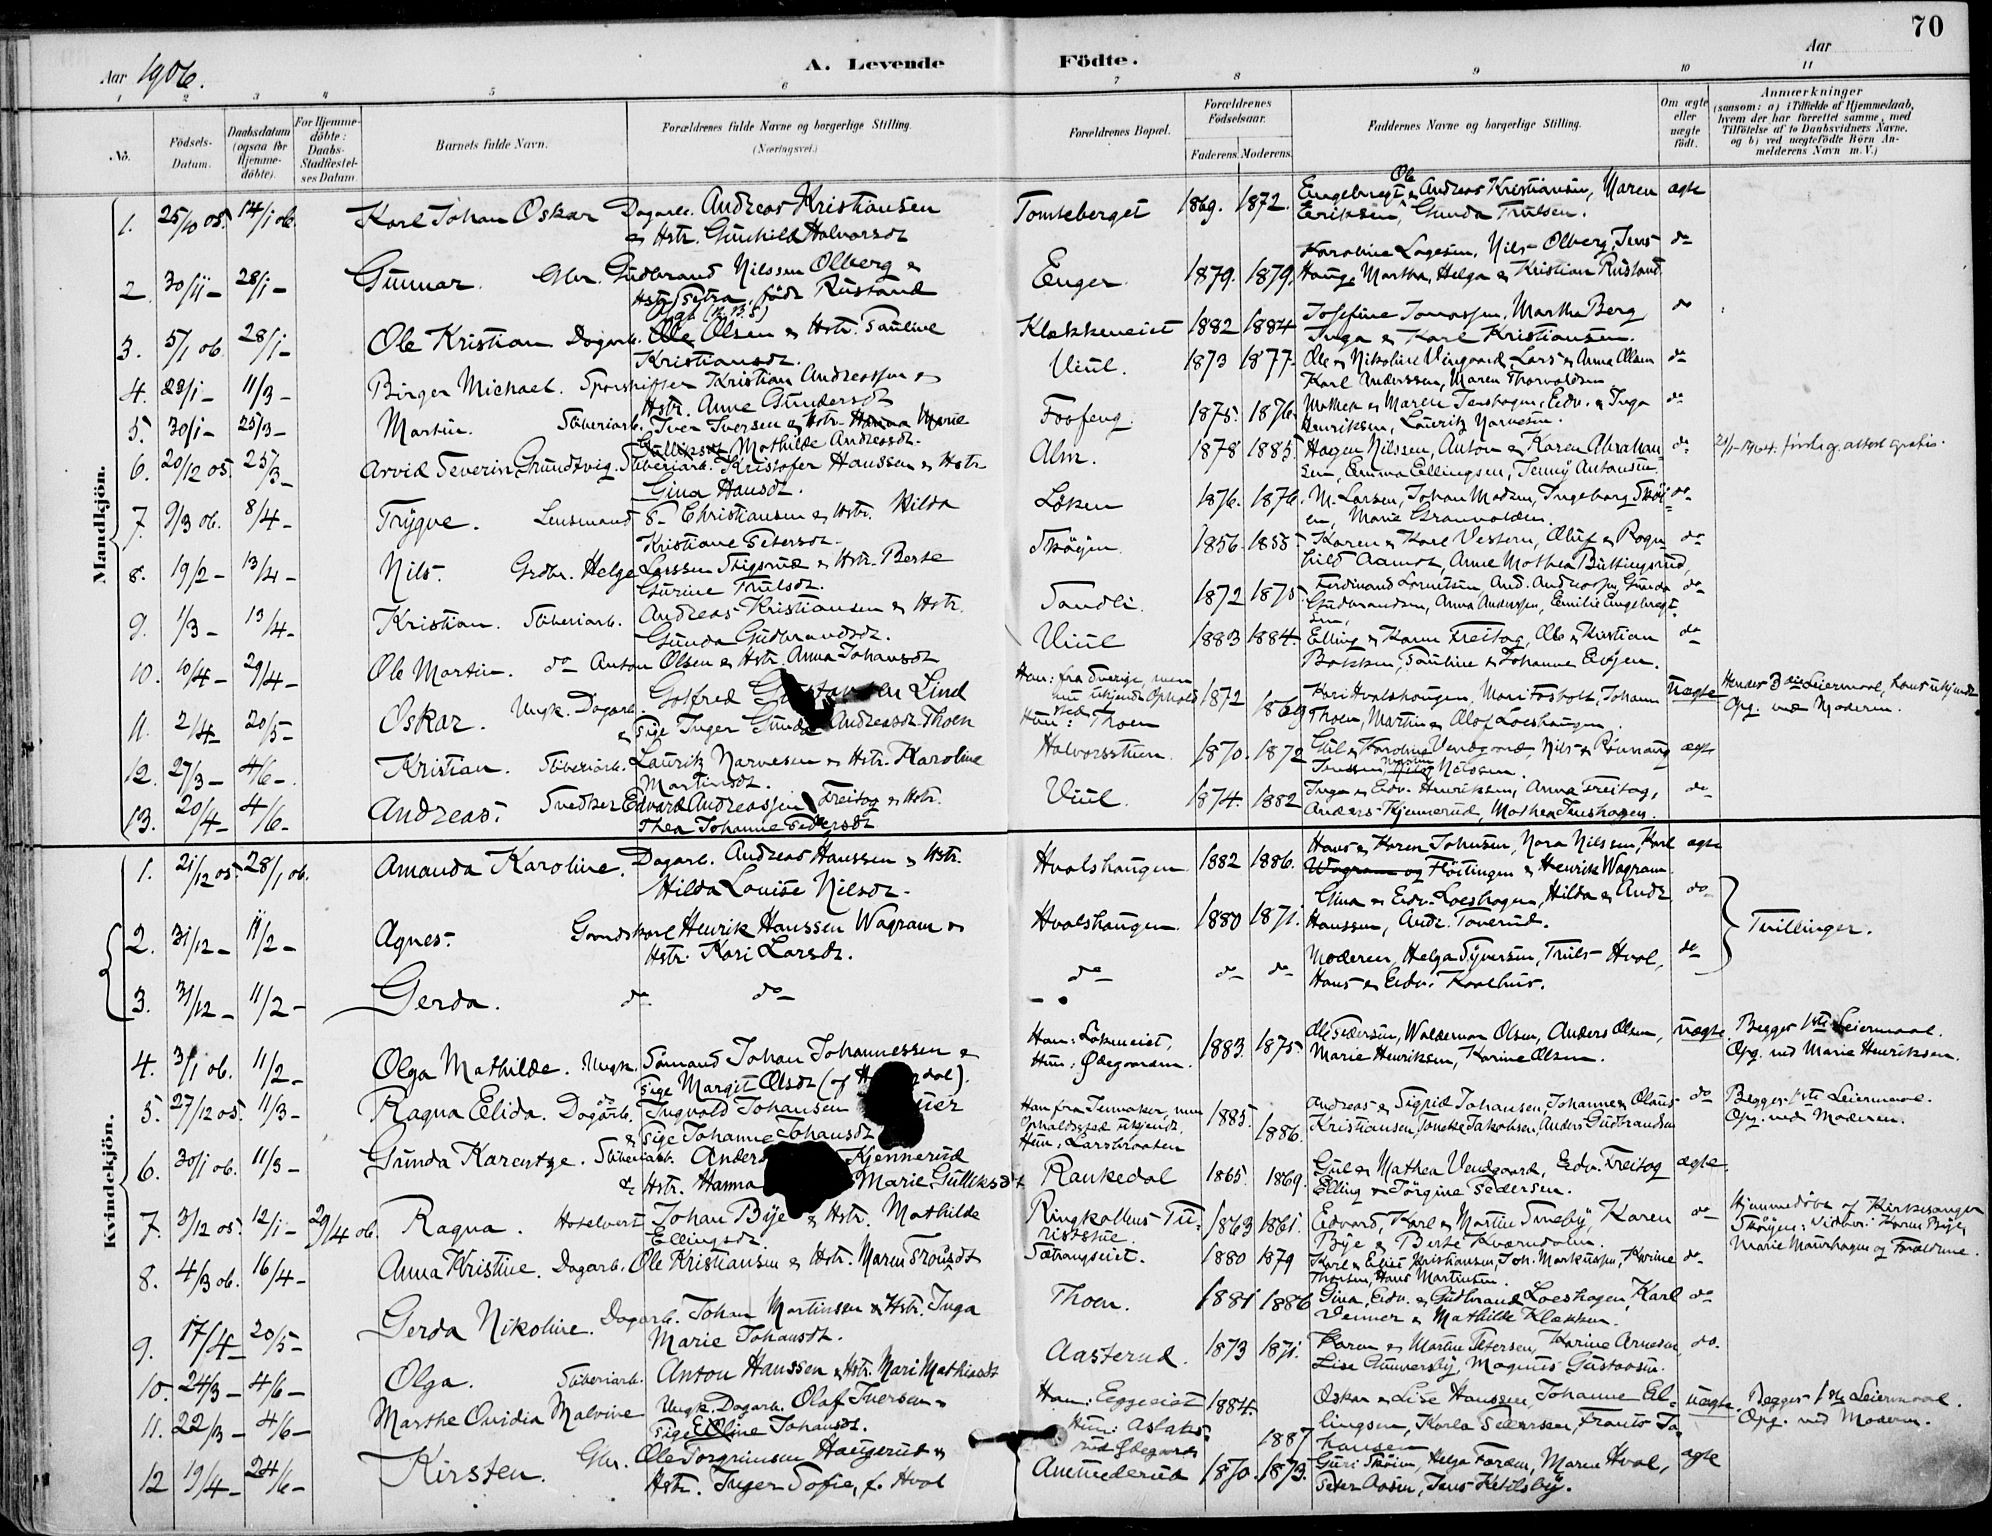 70
Aar 1906.
A. Levende Födte.
Aar
1 2 3 4 5 6 7 8 9 10 11
No.
Födsels-Datum.
Daabsdatum (ogsaa for Hjemme-döbte).
For Hjemme-döbte: Daabs-Stadfæstel-ses Datum.
Barnets fulde Navn.
Forældrenes fulde Navne og borgerlige Stilling.
(Næringsvei.)
Forældrenes Bopæl.
Forældrenes Födselsaar.
Faderens. Moderens.
Faddernes Navne og borgerlige Stilling.
Om ægte eller uægte födt.
Anmærkninger
(saasom: a) i Tilfælde af Hjemmedaab, hvem der har forrettet samme, med Tilföielse af to Daabsvidners Navne, og b) ved uægtefödte Börn Anmelderens Navn m. V.)
Mandkjön.
1. 25/10 05. 14/1 06. Karl Johan Oskar Dagarb. Andreas Kristiansen
& Hstr. Gunhild Halvorsdt
Tomteberget 1869. 1872. Engebregt & Andreas Kristiansen, Maren
Eeriksen, Gunda Trulsen. ægte
2. 30/11 – 28/1 – Gunnar. Gbr. Gudbrand Nilssen Olberg &
Hstr. Petra, född Rustand
Enger 1879. 1879. Karoline Lagesen, Nils Olberg, Jens
Haug, Martha, Helga & Kristian Rustand. do
3. 5/1 06. 28/1 – Ole Kristian Dagarb. Ole Olsen & Hstr. Pauline
Kristiansdt.
Klækkeneiet 1882 1884 Josefine Tomassen, Martha Berg
Inga & Karl Kristiansen. do
4. 23/1 – 11/3 – Birger Michael. Sporskifter Kristian Andreassen &
Hstr. Anne Gundersdt
Viul. 1873 1877. Ole & Nikoline Viengaard, Lars & Anna Olsen
Karl Anderssen, Maren Thorvaldsen do
5. 30/1 – 25/3 – Martin. Sliberiarb. Iver Iversen & Hstr. Hanna Marie
Gulliksdt Mathilde Andreasdt.
Fosfeng. 1875. 1876. Mathea & Maren Tenshagen, Edv. & Inga
Henriksen, Lauritz Narvesen. do
6. 20/12 05. 25/3 – Arvid Severin Grundtvig. Sliberiarb. Kristofer Hanssen & Hstr
Gina Hansdt.
Alm. 1878 1885 Hagen Nilssen, Anton & Karen Abraham
sen, Emma Ellingsen, Jenny Antonsen. do
7. 9/3 06. 8/4 – Trygve. Lensmand S. Christiansen & Hstr. Hilda
Kristiane Petersdt.
Løken 1876. 1876. M. Larsen, Johan Madsen, Ingeborg Skøi
en, Marie Granvolden. do
8. 19/2 – 13/4 – Nils. Grdbr. Helge Larssen Stigsrud & Hstr. Berte
Gurine Trulsdt.
Skøyen. 1856. 1855. Karen & Karl Vestern, Oluf & Ragn
hild Aamot, Anne Mathea Bittingsrud, do
9. 1/3 – 13/4 – Kristian. Sliberiarb. Andreas Kristiansen & Hstr.
Gunda Gudbrandsdt.
Sandli 1872 1875. Ferdinand Lorentsen And. Andreassen Gunda
Gudbrandsen, Anna Anderssen, Emilie Engebregt
sen. do
10. 10/4 – 29/4 – Ole Martin. do Anton Olsen & Hstr. Anna Johansdt
Viul 1883 1884. Elling & Karen Freitag, Ole & Kristian
Bakken, Pauline & Johanne Eriksen. do
11. 2/4 – 20/5 – Oskar. Ungk. Dagarb. Golfred Gustavsen Lind
& Pige Inger Gunda Andreasdt. Thoen
Han: fra Sverige, men
nu ukjendt Opholds
sted
Hun: Thoen
1872 1869 Kari Hvalshaugen, Mari Fosholt, Johan
Thoen, Martin & Olaf Loeshaugen. Uægte
Hendes 3die Leiermaal, hans ukjendt
Opg. ved Moderen.
12. 27/3 – 4/6 – Kristian. Sliberiarb. Lauritz Narvesen & Hstr. Karoline
Martinsdt.
Halvorsstuen. 1870. 1872 Gul & Karoline Vendgaard, Nils & Rønnaug
Jenssen, Nilssen. ægte
13. 20/4 – 4/6 – Andreas. Snedker Edvard Andreassen Freitag & Hstr.
Thea Johanne Pedersdt
Viul. 1874. 1882 Inga & Edv. Henriksen, Anna Freitag,
Anders Kjennerud, Mathea Tenshagen. do
Kvindekjön.
1. 21/12 05. 28/1 06. Amanda Karoline. Dagarb. Andreas Hanssen & Hstr.
Hilda Louise Nilsdt.
Hvalshaugen 1882 1886. Hans & Karen Johnsen, Nora Nilssen, Karl
Wagram og Fløitingen & Henrik Wagram. ægte
2. 31/12 – 11/2 – Agnes. Gaardskarl Henrik Hanssen Wagram &
Hstr. Kari Larsdt.
Hvalshaugen. 1880 1871. Gina & Edv. Loeshagen, Hilda & Andr.
Hanssen, Andr. Taverud. do
Tvillinger.
3. 31/12 – 11/2 – Gerda. do do
do do do Moderen, Helga Syversen, Truls Hval,
Hans & Edv. Kaalhus. do
4. 3/1 06. 11/2 – Olga Mathilde. Ungk. Sømand Johan Johannessen &
Pige Margit Olsdt (of H dal).
Han: Løkeneiet,
Hun: Ødegaarden.
1883. 1875. Ole Pedersen, Waldemar Olsen, Anders Olsen,
Marie Henriksen, Karine Olsen. Uægte
Begges 1ste Leiermaal.
Opg. ved Marie Henriksen.
5. 27/12 05. 11/3 – Ragna Elida. Dagarb. Ingvald Johansen
& Pige Johanne Johansdt
Han fra Jevnaker, nu
Opholdssted ukjendt.
Hun: Larsbraaten
1885. 1886. Andreas & Sigrid Johansen, Johanne & Olaus
Kristiansen, Jonette Jakobsen, Anders Gudbrandsen do
Begges 1ste Leiermaal.
Opg. ved Moderen.
6. 30/1 06. 11/3 – Gunda Karentze. Sliberiarb. Anders Kjennerud
& Hstr. Hanna Marie Gulliksdt
Rankedal 1865. 1869. Gul & Mathea Vendgaard, Edv. Freitag
Elling & Jørgine Pedersen. ægte
7. 3/12 05. 12/1 – 29/4 06. Ragna. Hotelvert Johan Bye & Hstr. Mathilde
Ellingsdt.
Ringkollens Tu-
riststue.
1863 1861. Edvard, Karl & Martin Smeby, Karen
Bye & Berte Kværndalen. do
Hjemmedøbt af Kirkesanger
Skøyen: Vidner: Karen Bye,
Marie Maurhagen og Forældrene.
8. 4/3 06. 16/4 – Anna Kristine. Dagarb. Ole Kristiansen & Hstr. Maren
Sætrangseiet. 1880 1879 Karl & Elise Kristiansen, Joh. Markussen, Karine
Thorsen, Hans Martinsen. do
9. 17/4 – 20/5 – Gerda Nikoline. Dagarb. Johan Martinsen & Hstr. Inga
Marie Johansdt.
Thoen. 1881 1886 Gina, Edv. & Gudbrand Loeshagen, Karl
Venner & Mathilde Klækken. do
10. 24/3 – 4/6 – Olga. Sliberiarb. Anton Hanssen & Hstr. Mari Mathisdt
Aasterud. 1873 1871. Karen & Martin Petersen, Karine Arnesen
Lise Gunnersby, Magnus Gustavsen. do.
11. 22/3 – 4/6 – Marthe Ovidia Malvine Ungk. Dagarb. Olaf Iversen &
Pige Eline Johansdt.
Han: Eggeeiet
Hun: Aslaks-
rud Ødegaard
1884. 1887 Oskar & Lise Hanssen, Johanne El-
lingsen, Karla Pederssen, Frants Jo
hansen uægte
Begges 1ste Leiermaal.
Opg. ved Moderen.
12 19/4 – 24/6 – Kirsten. Gbr. Ole Torgrimsen Haugerud &
Hstr. Inger Sofie, f. Hval
Ammederud 1870. 1873. Guri Skøien, Helga Faren, Maren Hval,
Peter Aasen, Jens Ketilsby. ægte